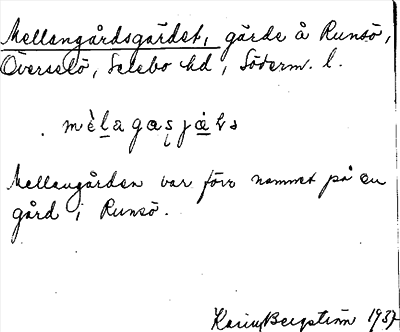 Mellangårdsgärdet, gärde å Runsö,
Överselö, Selebo hd, Söderm. l.
Mellangården var förr namnet på en
gård i Runsö.
Karin Bergström 1937